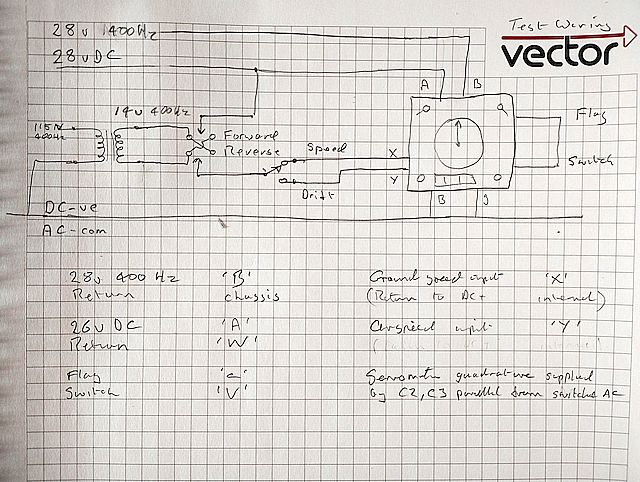 Test Wiring
vector
28v 400Hz
28v DC
A B
14v 400Hz
115v
400Hz
Forward
Reverse
Speed
Drift
X
Y
Flag
Switch
B
DC-ve
AC-com
28v 400 Hz 'B'
Return chassis
26v DC 'A'
Return 'W'
Flag 'c'
Switch 'V'
Ground speed input 'X'
(Return to DC+ internal)
input 'Y'
Servomotor quadrature supplied
by C2, C3 parallel from switched AC